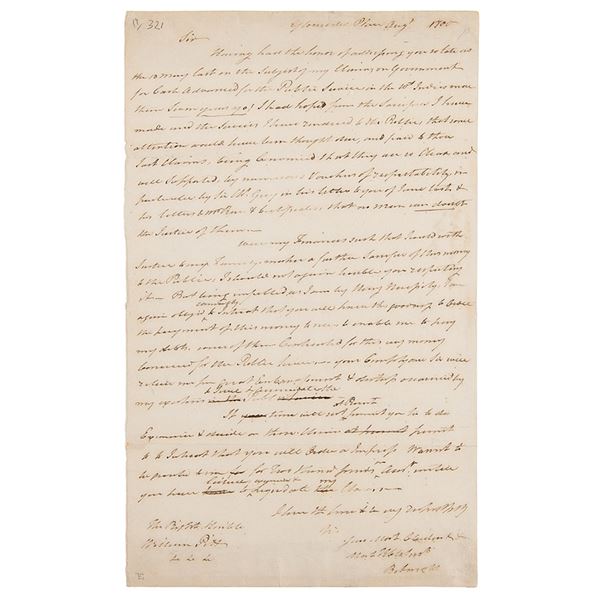 321
Gloucester Place Augt 1800
Sir
Having had the honor of addressing you so late as
the 12 May last on the Subject of my Claims on Government
for Cash Advanced for the Public Service in the Wt Indies more
than Seven years ago; I had hoped from the Sacrifices I have
made and the Services I have rendered to the Public, that some
attention would have been thought due, and paid to those
Just Claims, being convinced that they are so Clear and
well Supported by numerous Vouchers of respectability, in
particular by Sir Chs Grey in his letter to you of June last, &
his letters to that no man can doubt
the Justice of them
Were my Finances such that I could with
Justice to my Family make a further Sacrifice of this money
to the Public, I should not again trouble you respecting
it But being impelled as I am by Very Necessity, I am
again oblig'd to Intreat that you will have the goodness to Order
the payment of this money to me to enable me to pay
my debts, some of them Contracted for the very money
advanced for the Public Service, your Compliance Sir will
relieve me from Great Embarrassment & distress occasioned by
my exertions to Serve
If time will not at Present permit you to
Examine & decide on those Claims permit
me to Intreat that you will Order a Impress Warrant to
be issued to me for Two Thousand pounds, untill
you have leisure to
I have the honor to be my
Sir
The Right Honble
William Pitt
&c &c &c
Your Most Obedient &
Most Hble Servt